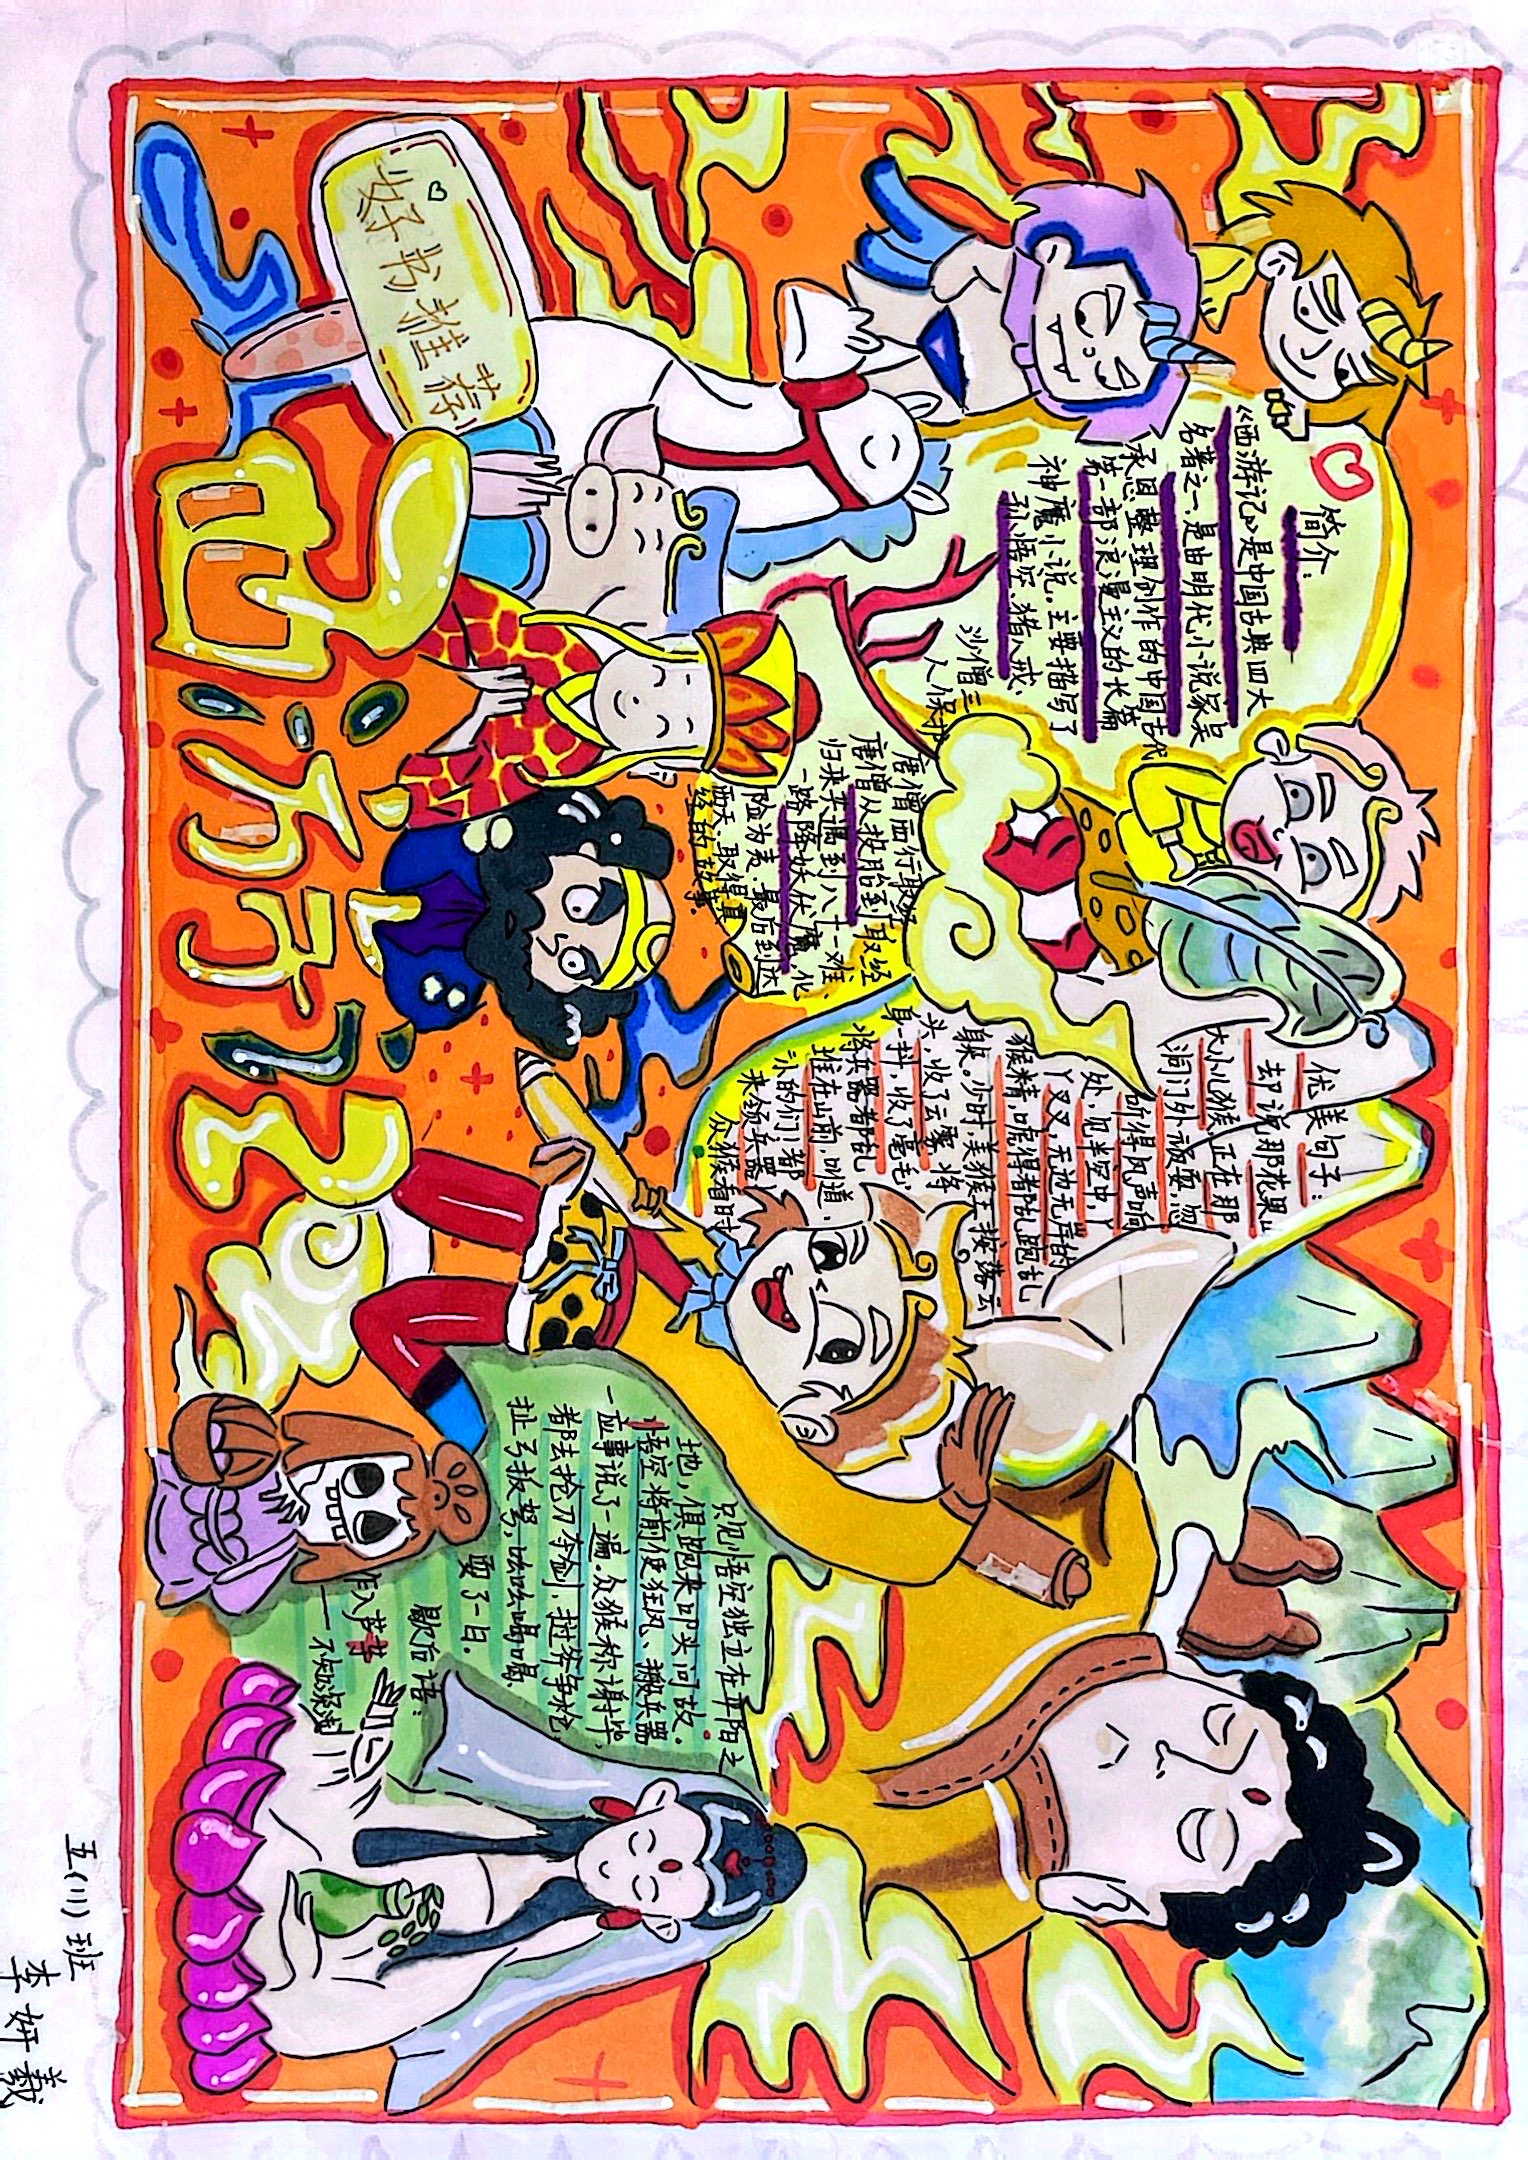 好书推荐
西游记
简介:
《西游记》是中国古典四大
名著之一,是由明代小说家吴
承恩整理创作的中国古代
第一部浪漫主义的长篇
神魔小说。主要描写了
孙悟空、猪八戒、
沙僧三
人保护
唐僧西行取经
唐僧从投胎到取经
归来共遇到八十一难、
一路降妖伏魔、化
险为夷、最后到达
西天、取得真
经的故事。
优美句子:
却说那花果山
大小儿猴,正在那
洞门外顽耍,忽
听得风声响
处,见半空中,丫
丫叉叉,无边无岸的
猴精,唬得都乱跑乱
躲。少时美猴王按落云
头,收了云雾,将
身一抖,收了毫毛,
将兵器都乱
堆在山前,叫道,
小的们!都
来领兵器!
众猴看时
只见悟空独立在平阳之
地,俱跑来叩头问故。
悟空将前使狂风、搬兵器
一应事说了一遍。众猴称谢毕,
都去抢刀夺剑,挝斧争枪
扯弓扳弩,吆吆喝喝、
耍了一日。
歇后语:
——不知深浅
五(1)班
李妍羲